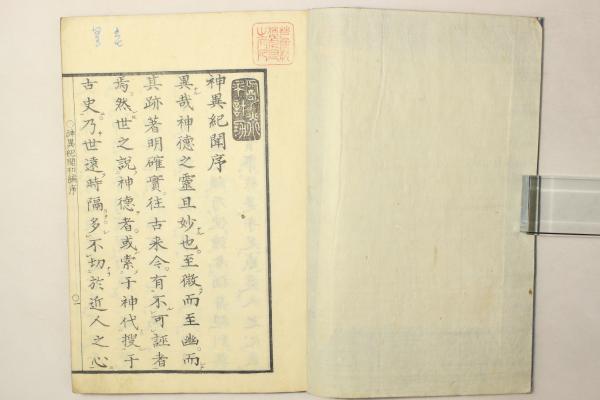 神異紀聞序
異哉神德之靈且妙也至微而至幽而
其跡著明確實往古来今有不可誣者
焉然世之說神德者或索于神代搜于
古史乃世遠時隔多不切於近人之心
神異紀聞初編序